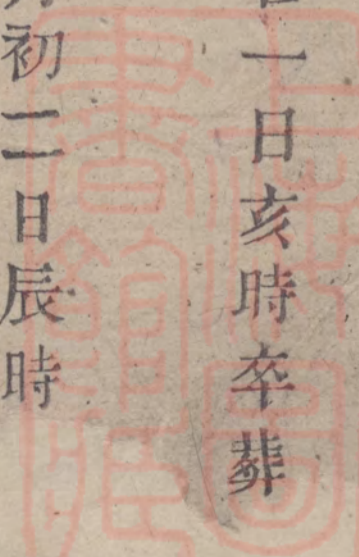 一日亥時卒葬
初二日辰時